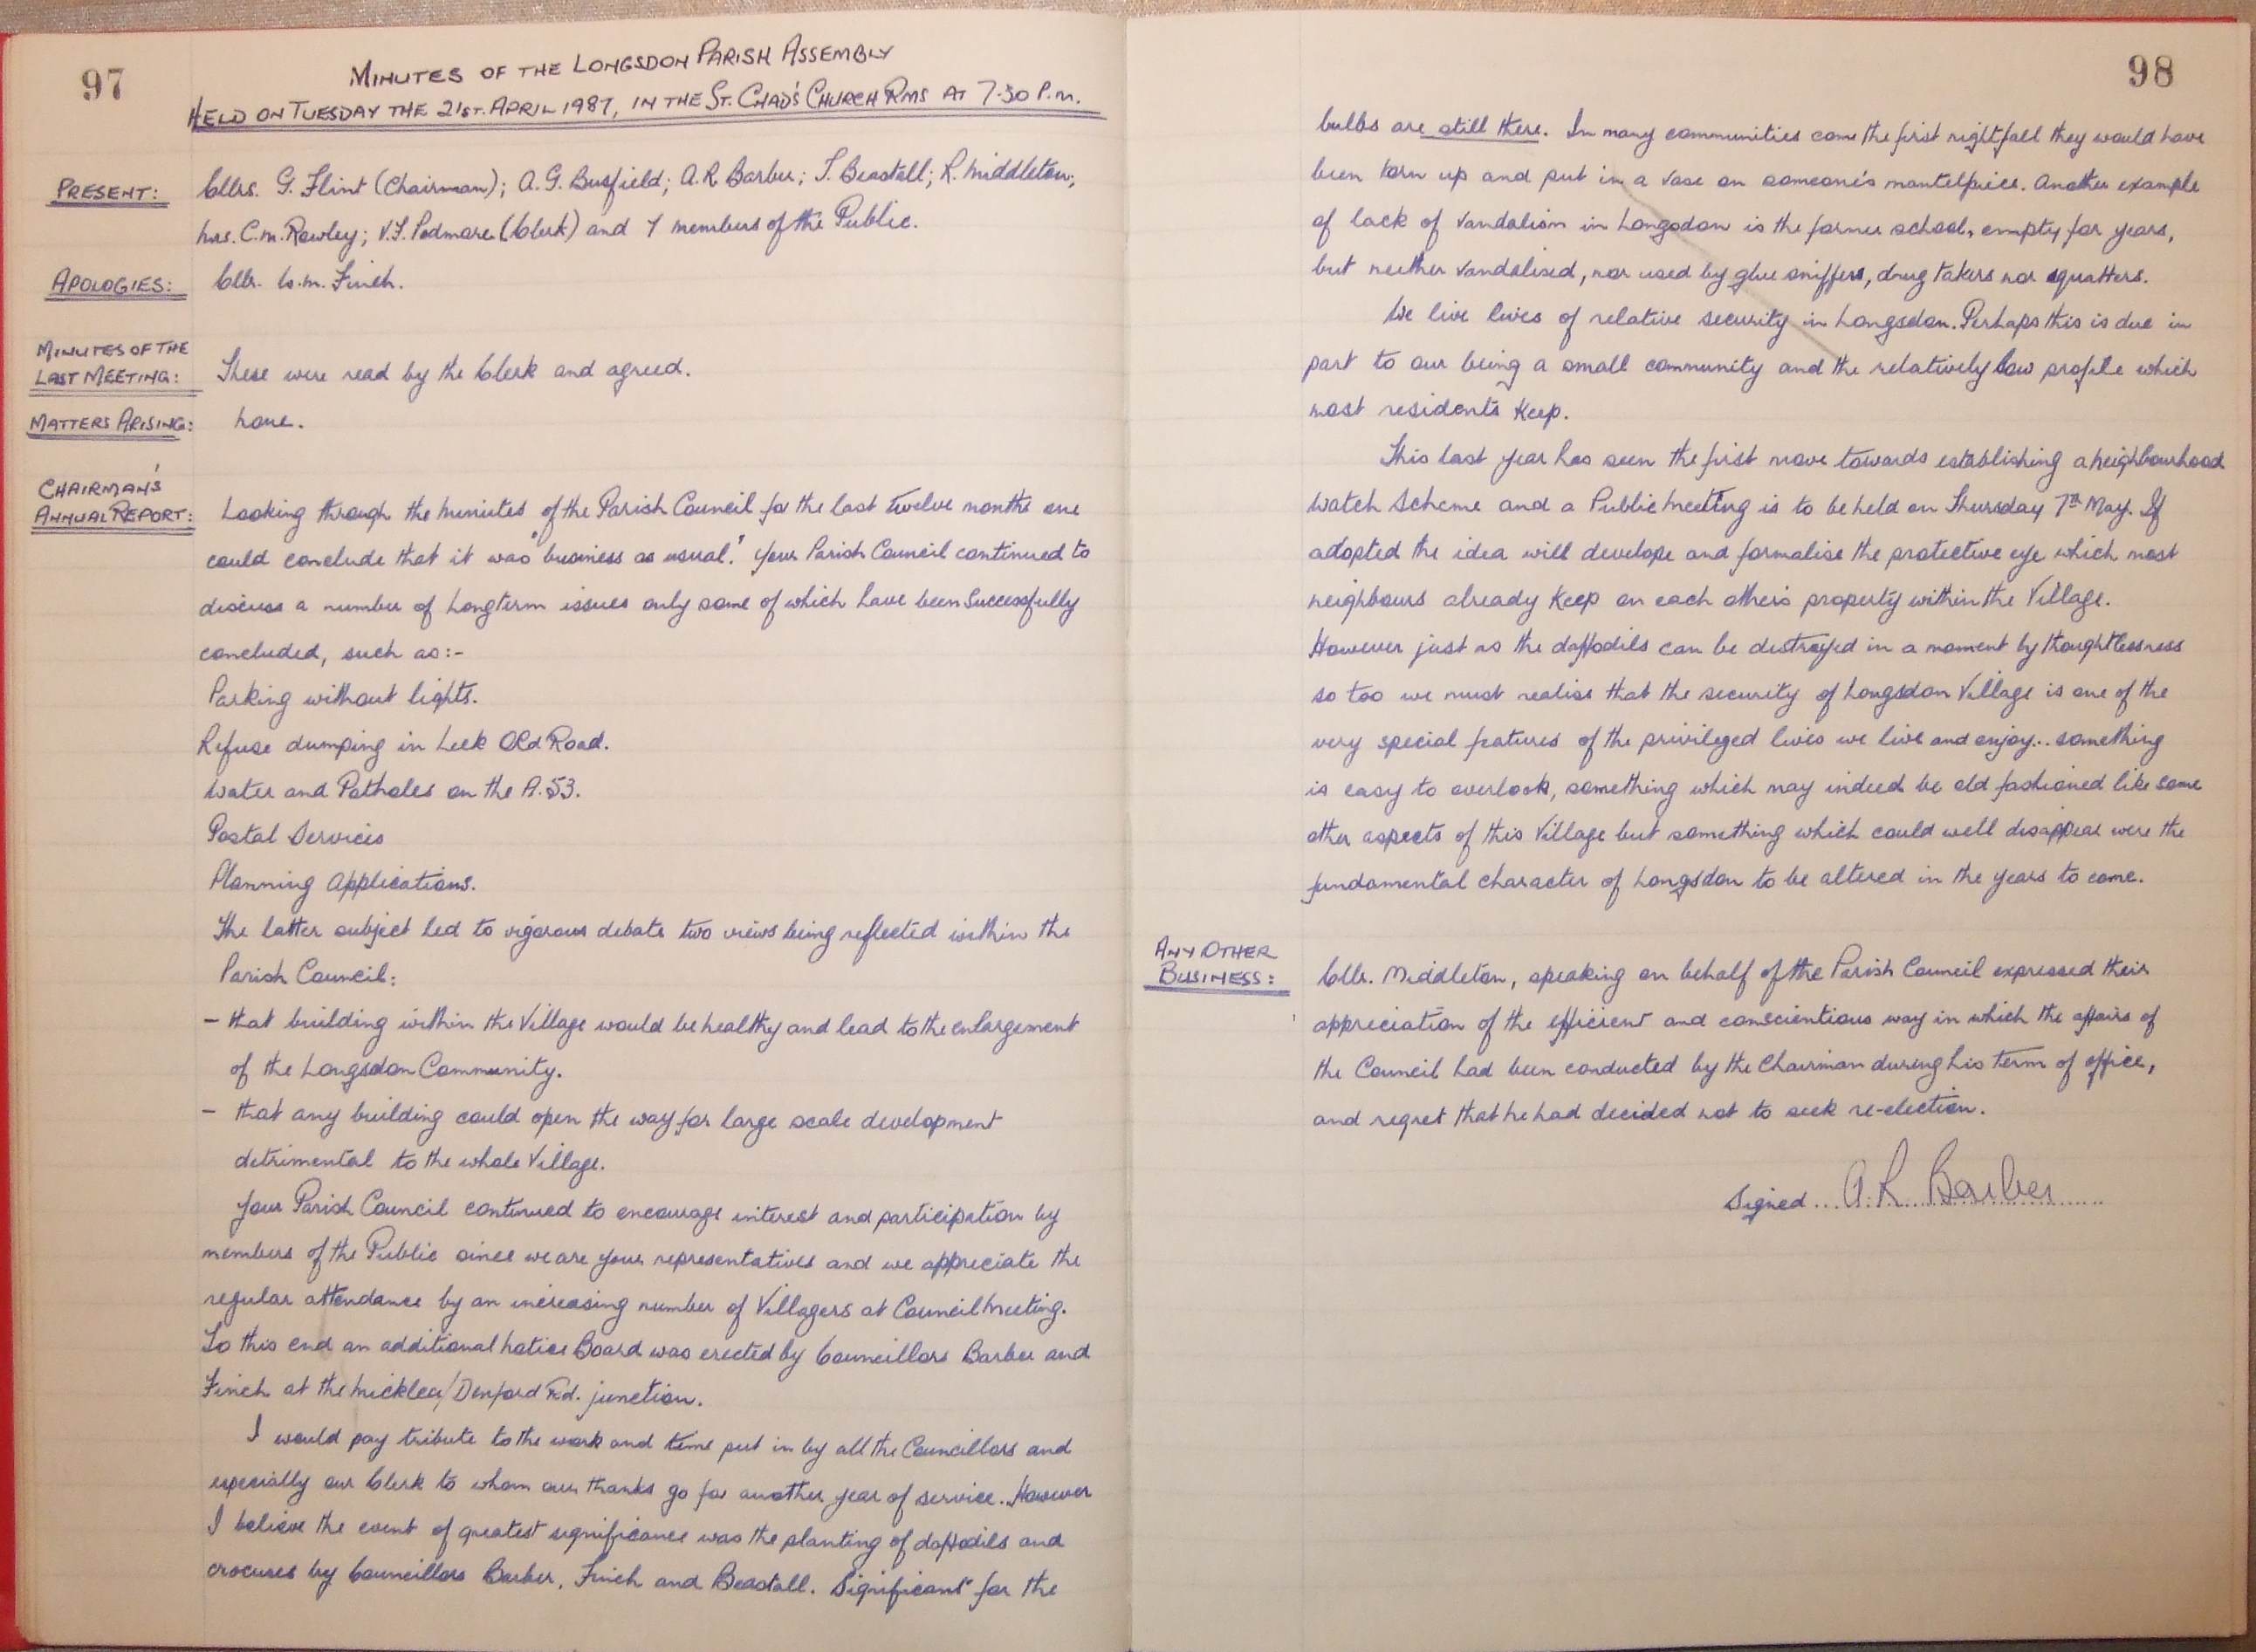 97
MINUTES OF THE LONGSDON PARISH ASSEMBLY
HELD ON TUESDAY THE 21ST. APRIL 1987, IN THE ST. CHAD'S CHURCH RMS AT 7.30 P.m.
PRESENT: Cllrs. G. Flint (Chairman); A. G. Busfield; A.R. Barber; T. Beastall; R. Middleton;
Mrs. C.M. Rowley; V.T. Podmore (Clerk) and 7 members of the Public.
APOLOGIES: Cllr. W.M. Finch.
MINUTES OF THE
LAST MEETING: These were read by the Clerk and agreed.
MATTERS ARISING: None.
CHAIRMAN'S
ANNUAL REPORT: Looking through the Minutes of the Parish Council for the last twelve months one
could conclude that it was "business as usual". Your Parish Council continued to
discuss a number of Longterm issues only some of which have been successfully
concluded, such as:-
Parking without lights.
Refuse dumping in Leek Old Road.
Water and Potholes on the A.53.
Postal Services
Planning Applications.
The latter subject led to vigorous debate two views being reflected within the
Parish Council:
- that building within the Village would be healthy and lead to the enlargement
of the Longsdon Community.
- that any building could open the way for large scale development
detrimental to the whole Village.
Your Parish Council continued to encourage interest and participation by
members of the Public since we are your representatives and we appreciate the
regular attendance by an increasing number of Villagers at Council Meeting.
To this end an additional Notice Board was erected by Councillors Barber and
Finch at the Micklea/Denford Rd. junction.
I would pay tribute to the work and time put in by all the Councillors and
especially our Clerk to whom our thanks go for another year of service. However
I believe the event of greatest significance was the planting of daffodils and
crocuses by Councillors Barber, Finch and Beastall. Significant for the
98
bulbs are still there. In many communities come the first nightfall they would have
been torn up and put in a vase on someone's mantelpiece. Another example
of lack of vandalism in Longsdon is the former school, empty for years,
but neither vandalised, nor used by glue sniffers, drug takers nor squatters.
We live lives of relative security in Longsdon. Perhaps this is due in
part to our being a small community and the relatively low profile which
most residents keep.
This last year has seen the first move towards establishing a Neighbourhood
Watch Scheme and a Public Meeting is to be held on Thursday 7th May. If
adopted the idea will develope and formalise the protective eye which most
neighbours already keep on each other's property within the Village.
However just as the daffodils can be destroyed in a moment by thoughtlessness
so too we must realise that the security of Longsdon Village is one of the
very special features of the privileged lives we live and enjoy... something
is easy to overlook, something which may indeed be old fashioned like some
other aspects of this Village but something which could well disappear were the
fundamental character of Longsdon to be altered in the years to come.
ANY OTHER
BUSINESS: Cllr. Middleton, speaking on behalf of the Parish Council expressed their
appreciation of the efficient and conscientious way in which the affairs of
the Council had been conducted by the Chairman during his term of office,
and regret that he had decided not to seek re-election.
Signed ... A. R. Barber ......